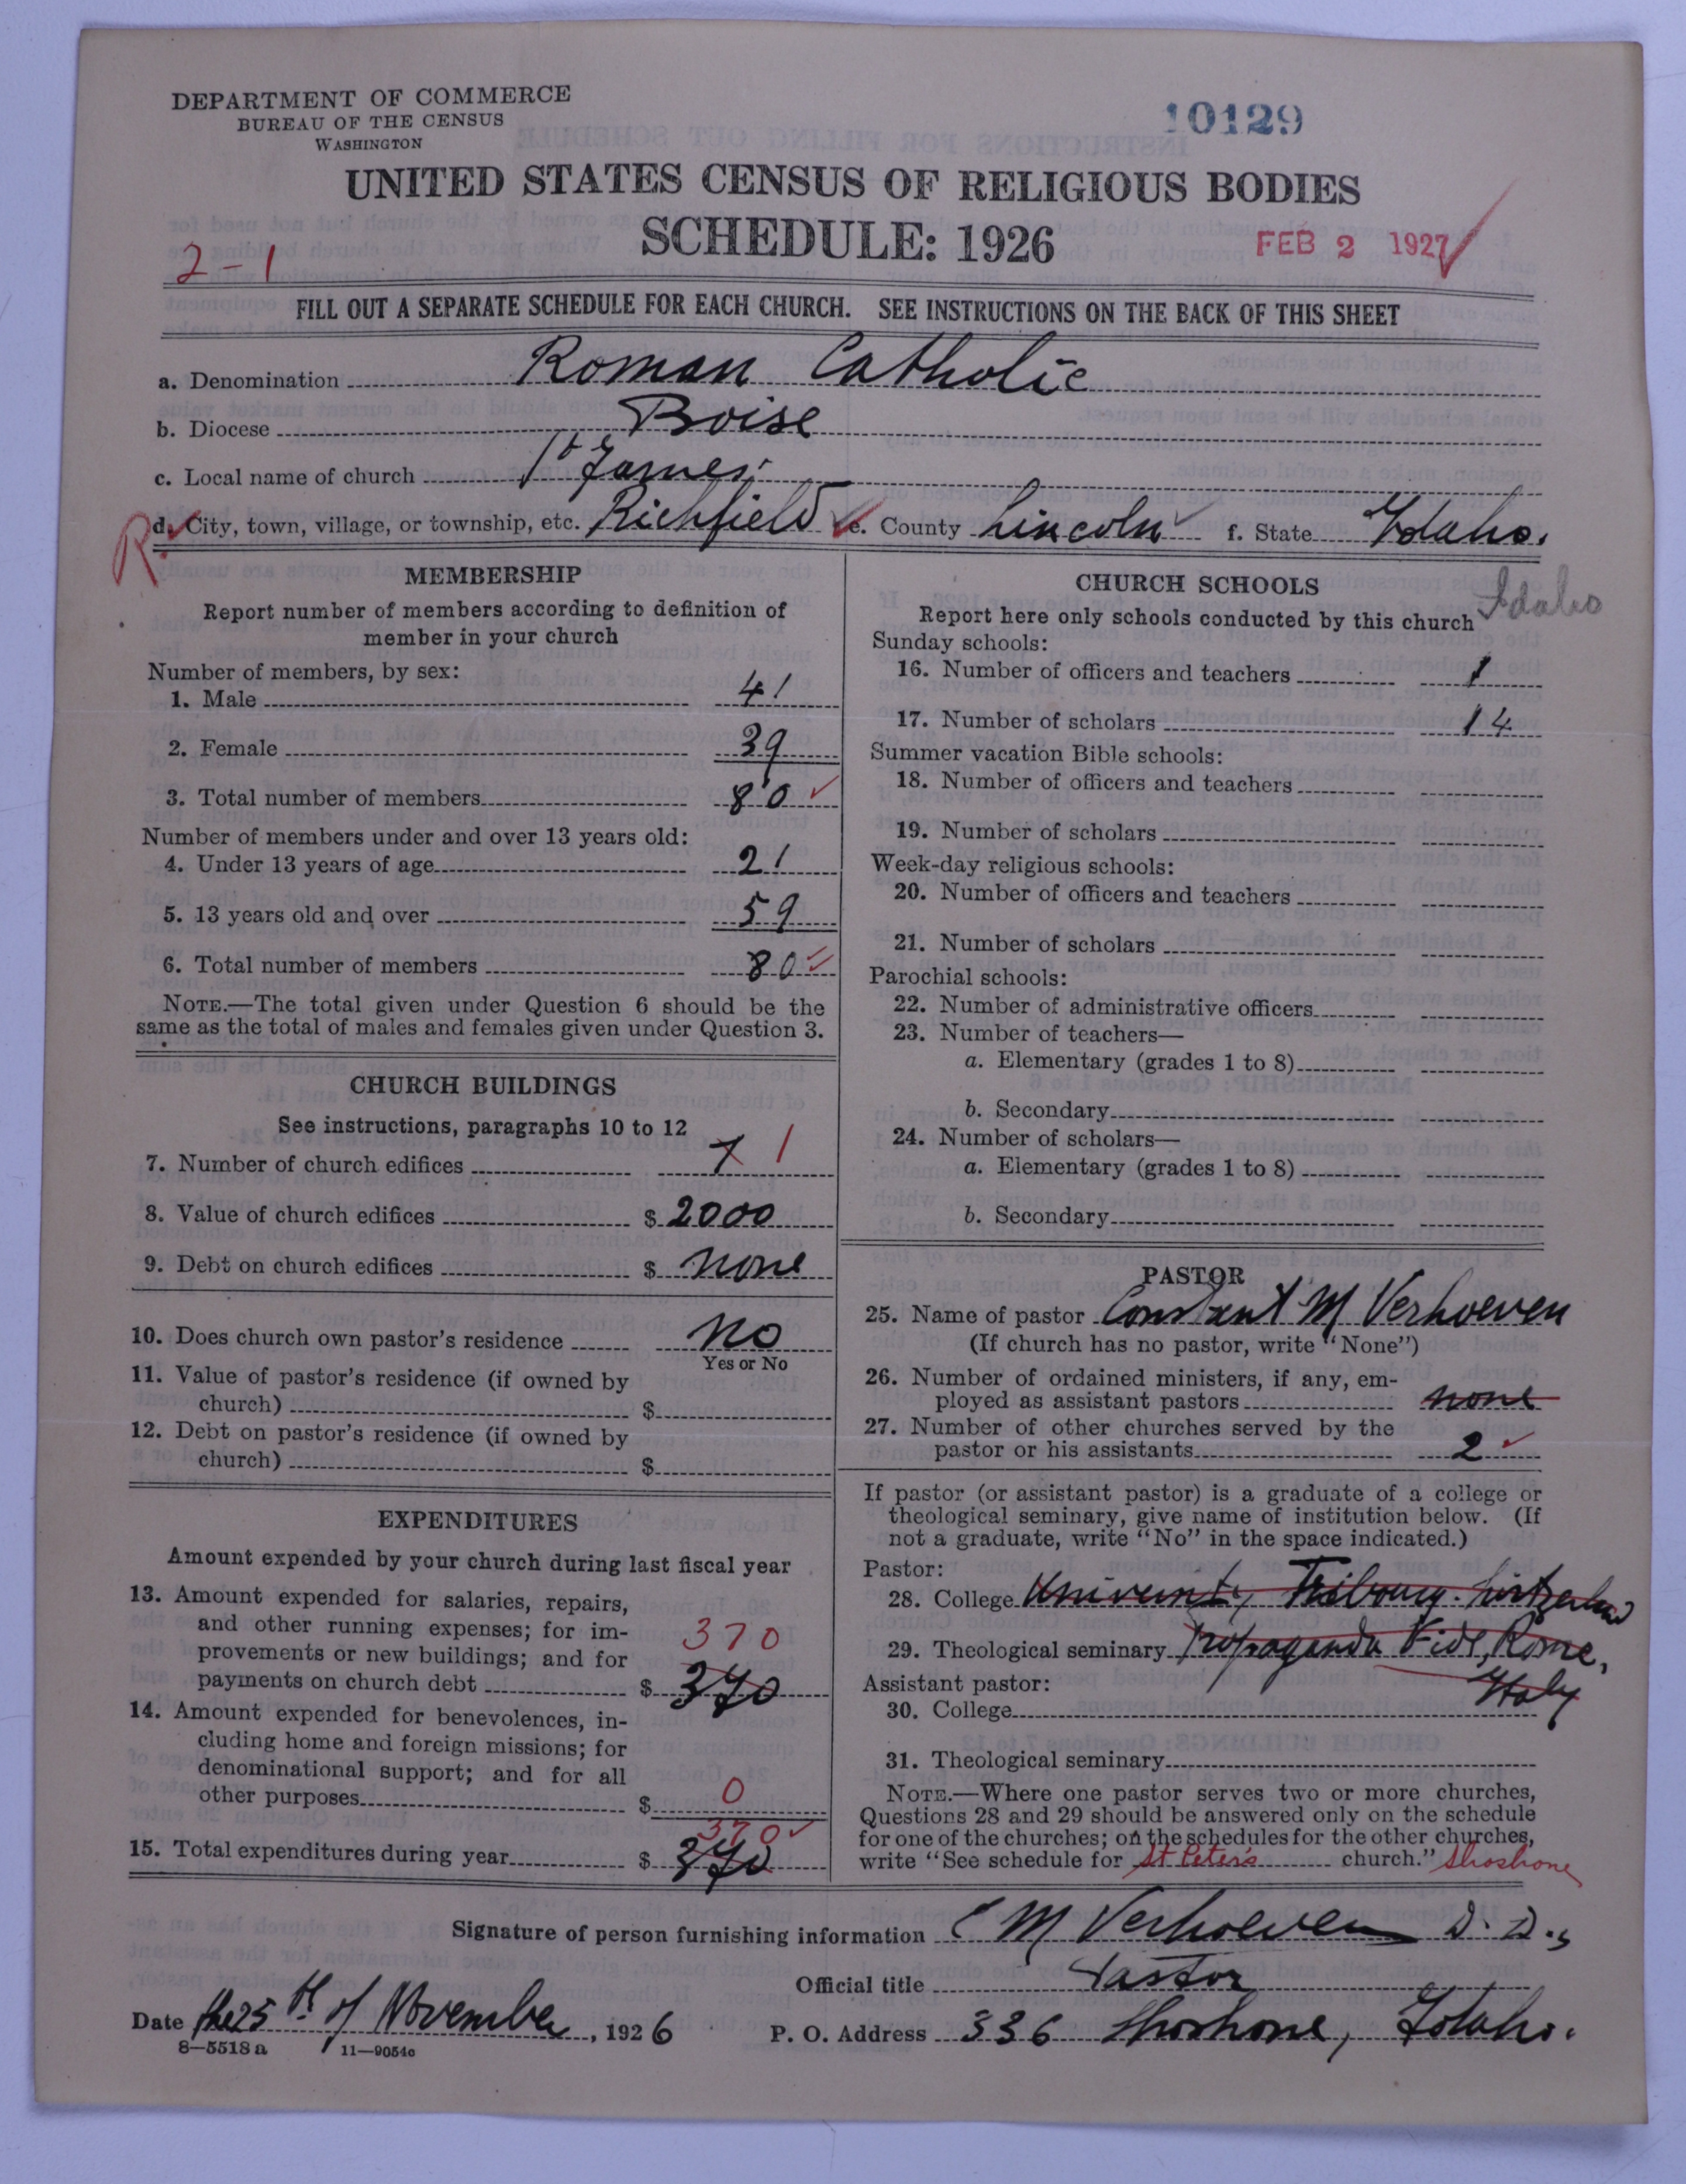 DEPARTMENT OF COMMERCE
BUREAU OF THE CENSUS
WASHINGTON
10129
UNITED STATES CENSUS OF RELIGIOUS BODIES
SCHEDULE: 1926
FEB 2 1927
2-1
FILL OUT A SEPARATE SCHEDULE FOR EACH CHURCH. SEE INSTRUCTIONS ON THE BACK OF THIS SHEET
a. Denomination Roman Catholic
b. Diocese Boise
c. Local name of church St James
R d. City, town, village, or township, etc. Richfield e. County Lincoln f. State Idaho.
MEMBERSHIP
Report number of members according to definition of
member in your church
Number of members, by sex:
1. Male 41
2. Female 39
3. Total number of members 80
Number of members under and over 13 years old:
4. Under 13 years of age 21
5. 13 years old and over 59
6. Total number of members 80
NOTE.—The total given under Question 6 should be the
same as the total of males and females given under Question 3.
CHURCH BUILDINGS
See instructions, paragraphs 10 to 12
7. Number of church edifices 1 1
8. Value of church edifices $ 2000
9. Debt on church edifices $ none
10. Does church own pastor's residence no
Yes or No
11. Value of pastor's residence (if owned by
church) $
12. Debt on pastor's residence (if owned by
church) $
EXPENDITURES
Amount expended by your church during last fiscal year
13. Amount expended for salaries, repairs,
and other running expenses; for im-
provements or new buildings; and for
370
payments on church debt $ 370
14. Amount expended for benevolences, in-
cluding home and foreign missions; for
denominational support; and for all
other purposes $ 0
370
15. Total expenditures during year $ 370
CHURCH SCHOOLS
Idaho
Report here only schools conducted by this church
Sunday schools:
16. Number of officers and teachers 1
17. Number of scholars 14
Summer vacation Bible schools:
18. Number of officers and teachers
19. Number of scholars
Week-day religious schools:
20. Number of officers and teachers
21. Number of scholars
Parochial schools:
22. Number of administrative officers
23. Number of teachers—
a. Elementary (grades 1 to 8)
b. Secondary
24. Number of scholars—
a. Elementary (grades 1 to 8)
b. Secondary
PASTOR
25. Name of pastor Constant M Verhoeven
(If church has no pastor, write "None")
26. Number of ordained ministers, if any, em-
ployed as assistant pastors none
27. Number of other churches served by the
pastor or his assistants 2
If pastor (or assistant pastor) is a graduate of a college or
theological seminary, give name of institution below. (If
not a graduate, write "No" in the space indicated.)
Pastor:
28. College University Fribourg
29. Theological seminary Propaganda Fide, Rome,
Italy
Assistant pastor:
30. College
31. Theological seminary
NOTE.—Where one pastor serves two or more churches,
Questions 28 and 29 should be answered only on the schedule
for one of the churches; on the schedules for the other churches,
write "See schedule for St Peter's church." Shoshone
Signature of person furnishing information C M Verhoeven D. D.,
Official title Pastor
Date the 25th of November, 1926 P. O. Address 336 Shoshone, Idaho.
8-5518 a 11-9054c